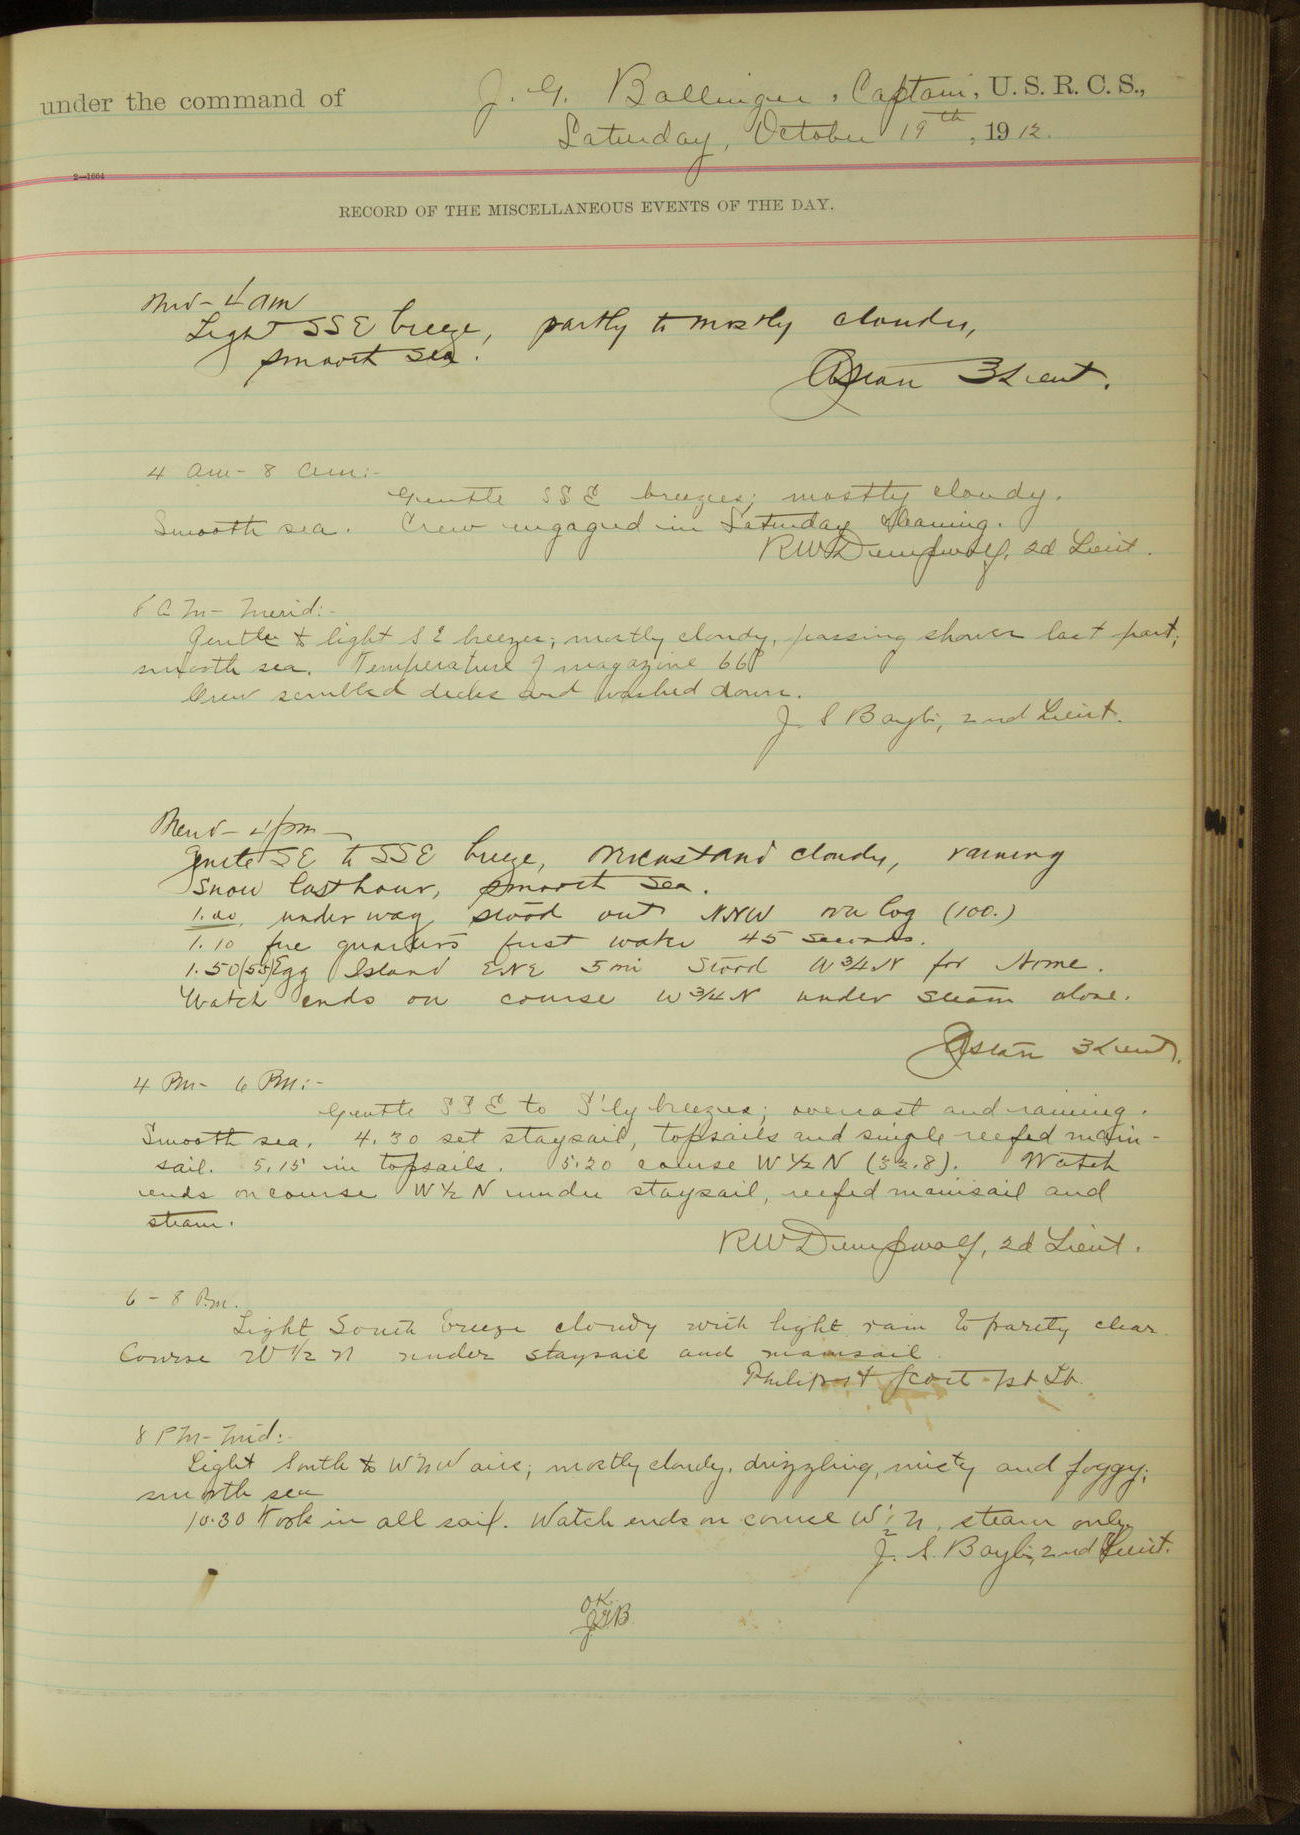 under the command of J. G. Ballinger, Captain, U. S. R. C. S.,
Saturday, October 19th, 1912.
2—1664
RECORD OF THE MISCELLANEOUS EVENTS OF THE DAY.
Mid - 4 am
Light SSE breeze, partly to mostly cloudy,
smooth sea.
3 Lieut.
4 am - 8 am:-
Gentle SSE breezes; mostly cloudy.
Smooth sea. Crew engaged in Saturday cleaning.
RW Dempwolf, 2d Lieut.
8 A M - Merid:-
Gentle to light S E breezes; mostly cloudy, passing shower last part;
smooth sea. Temperature of magazine 66°
Crew scrubbed decks and washed down.
J S Baylis, 2nd Lieut.
Merid - 4 pm -
Gentle SE to SSE breeze, overcast and cloudy, raining
snow last hour, smooth sea.
1.00, under way stood out NNW over log (100.)
1.10 fire quarters first water 45 seconds.
1.50 (55) Egg Island ENE 5 mi stood W 3/4 N for Nome.
Watch ends on course W 3/4 N under steam alone.
3 Lieut.
4 PM - 6 PM:-
Gentle SSE to S'ly breezes; overcast and raining.
Smooth sea. 4.30 set staysail, topsails and single reefed main-
sail. 5.15 in topsails. 5.20 course W 1/2 N (32.8). Watch
ends on course W 1/2 N under staysail, reefed mainsail and
steam.
RW Dempwolf, 2d Lieut.
6 - 8 P.m.
Light South breeze cloudy with light rain to partly clear.
Course W 1/2 N under staysail and mainsail.
Philip H Scott 1st Lt.
8 P M - Mid:-
Light South to WNW airs; mostly cloudy, drizzling, misty and foggy;
smooth sea
10.30 Took in all sail. Watch ends on course W 1/2 N, steam only
J. S. Baylis, 2nd Lieut.
OK.
JGB